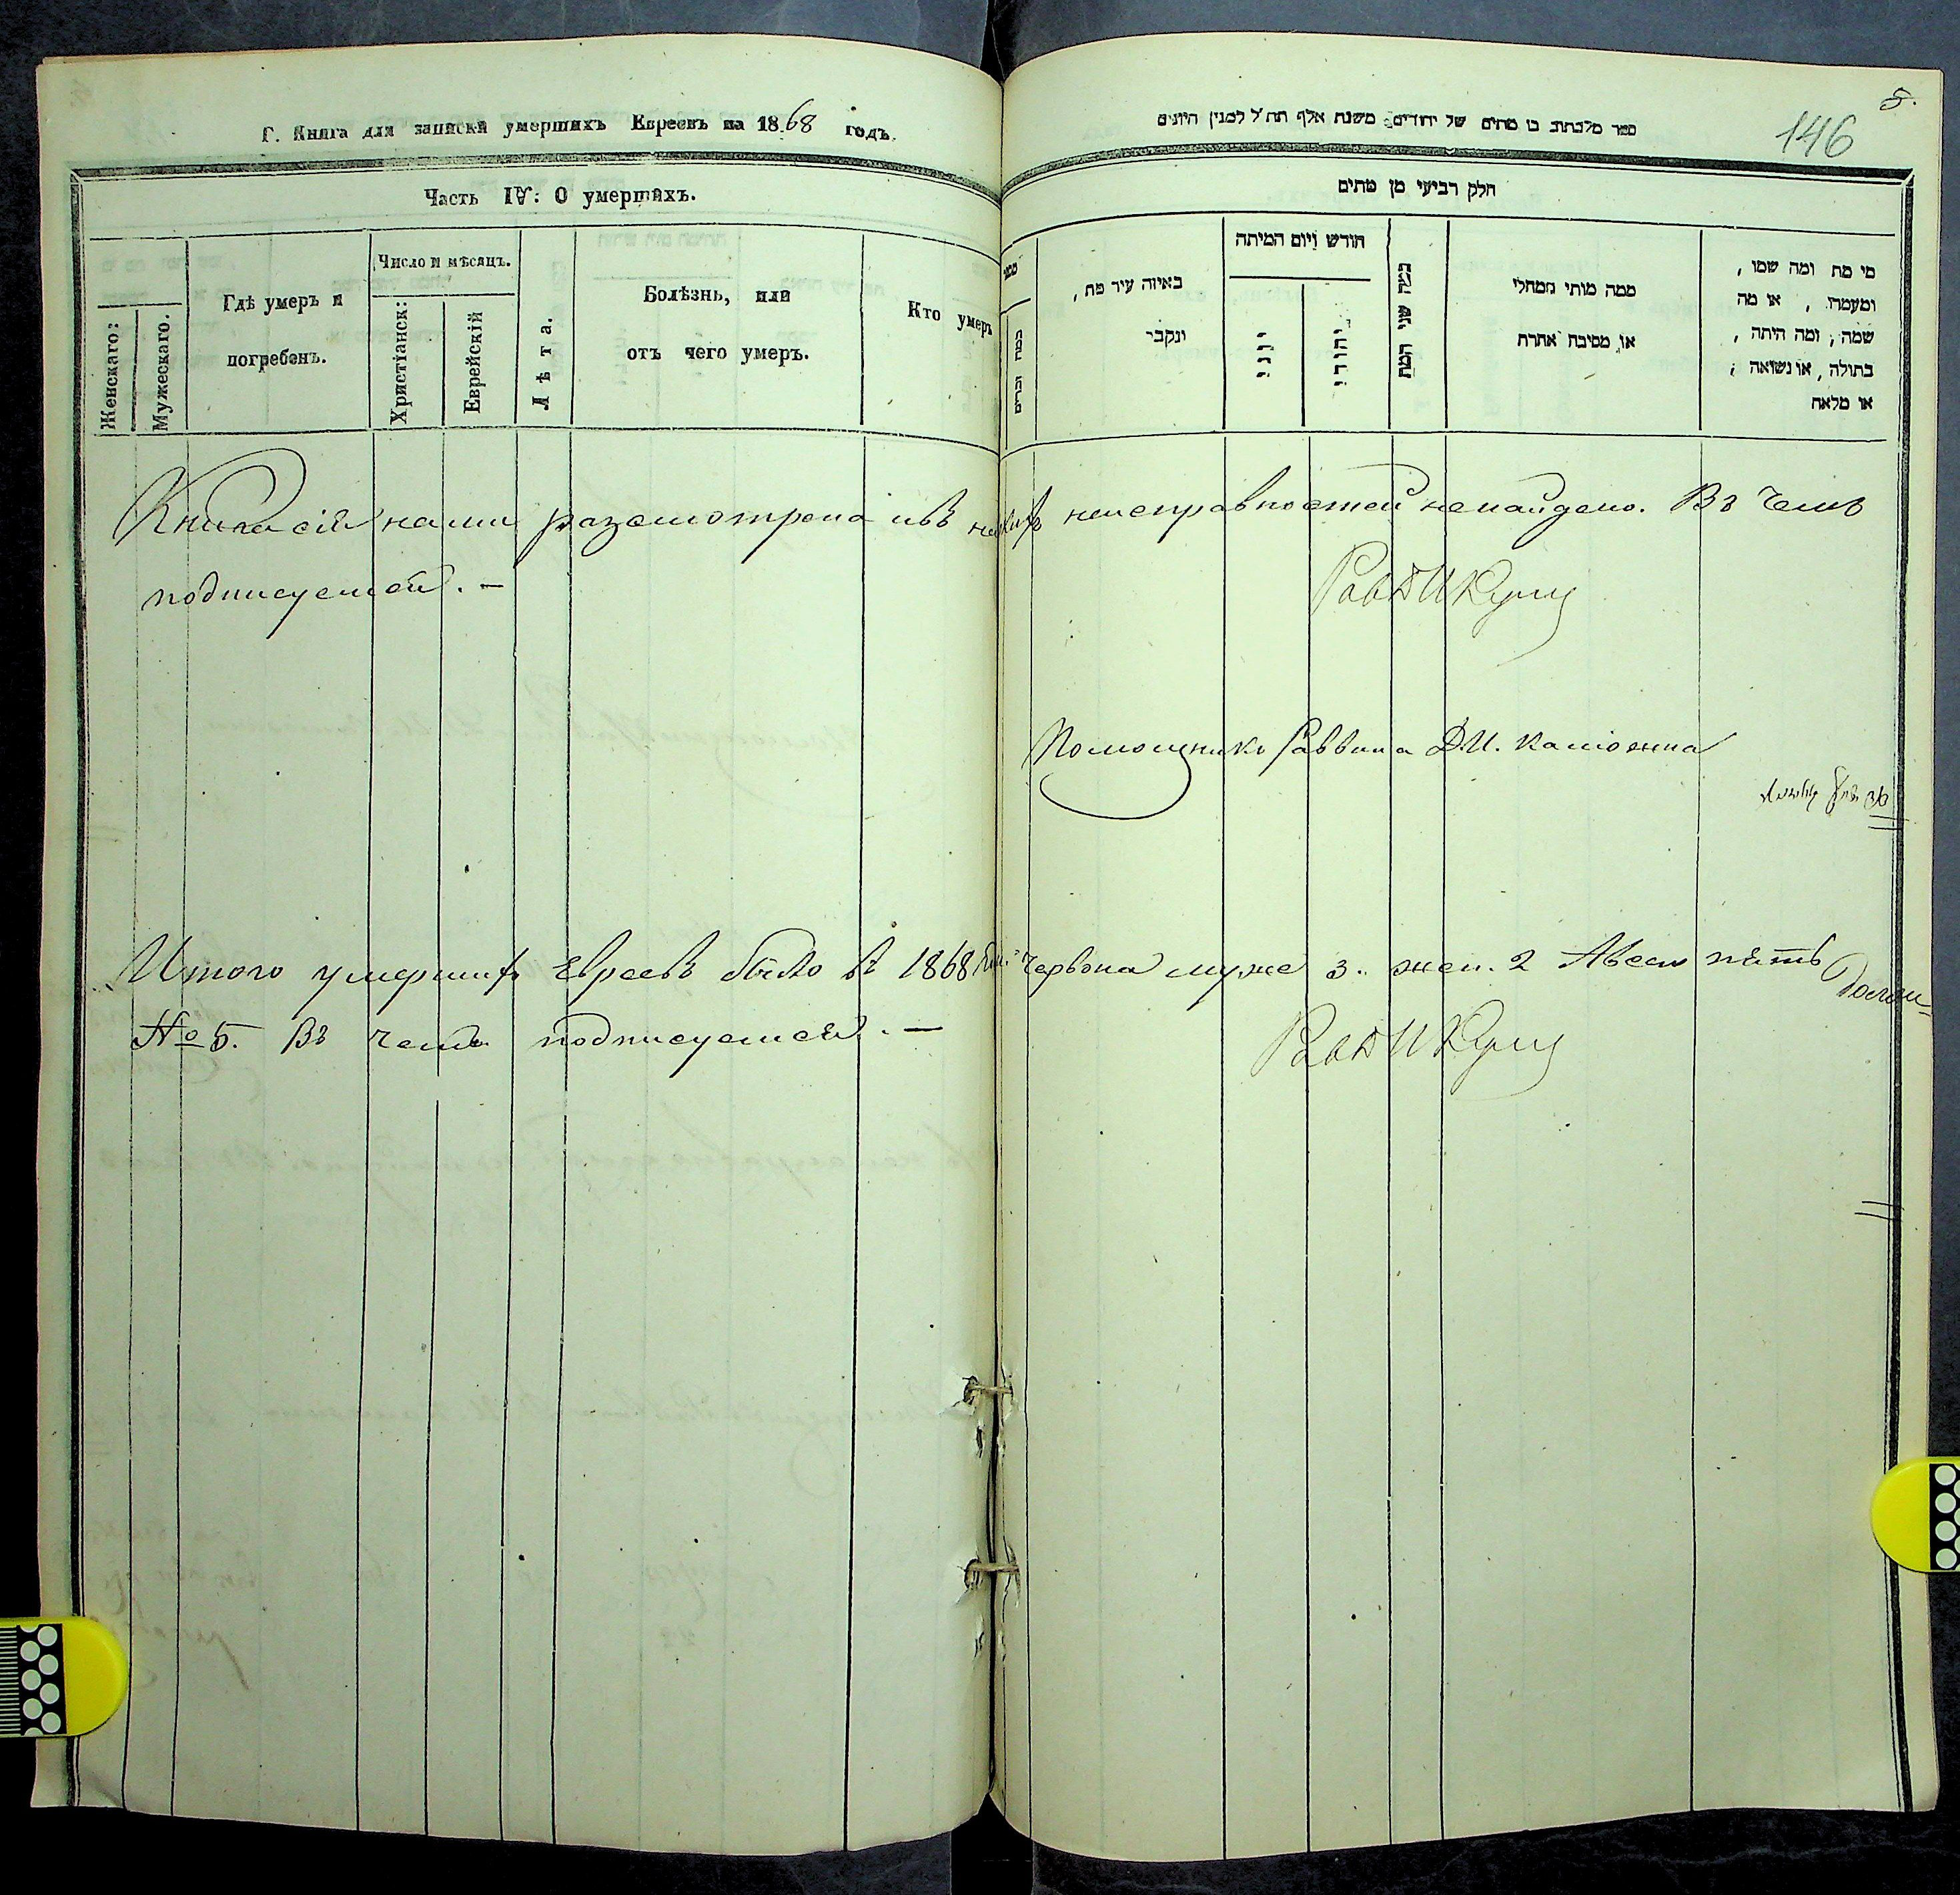 Г. Книга для записки умершихъ Евреевъ на 1868 годъ.
Часть IV: О умершихъ.
Женскаго:
Мужескаго.
Гдѣ умеръ и
погребенъ.
Число и мѣсяцъ.
Христіанск:
Еврейскій
Лѣта.
Болѣзнь, или
отъ чего умеръ.
Кто умеръ
5.
146
ספר מלכתוב בו מתים של יהודים משנת אלף תת"ל למנין היונים
חלק רביעי מן מתים
מי מת ומה שמו,
ומעמדו, או מה
שמה, ומה היתה,
בתולה, או נשואה;
או מלאה
ממה מותי ממחלי
או מסיבה אחרת
כמה שני המת
חודש ויום המיתה
יהודי
יוני
באיזה עיר מת,
ונקבר
כמה זכרים
Книга сія нами разсмотрена и въ ней неисправностей ненайдено. Въ чемъ
подписуемся. —
Рав
Помощникъ Раввина Д.И. Камтенна
Итого умершихъ Евреевъ было въ 1868 Червона муже 3. жен. 2 Авсего пять
№ 5. Въ чемъ подписуемся. —
Рав